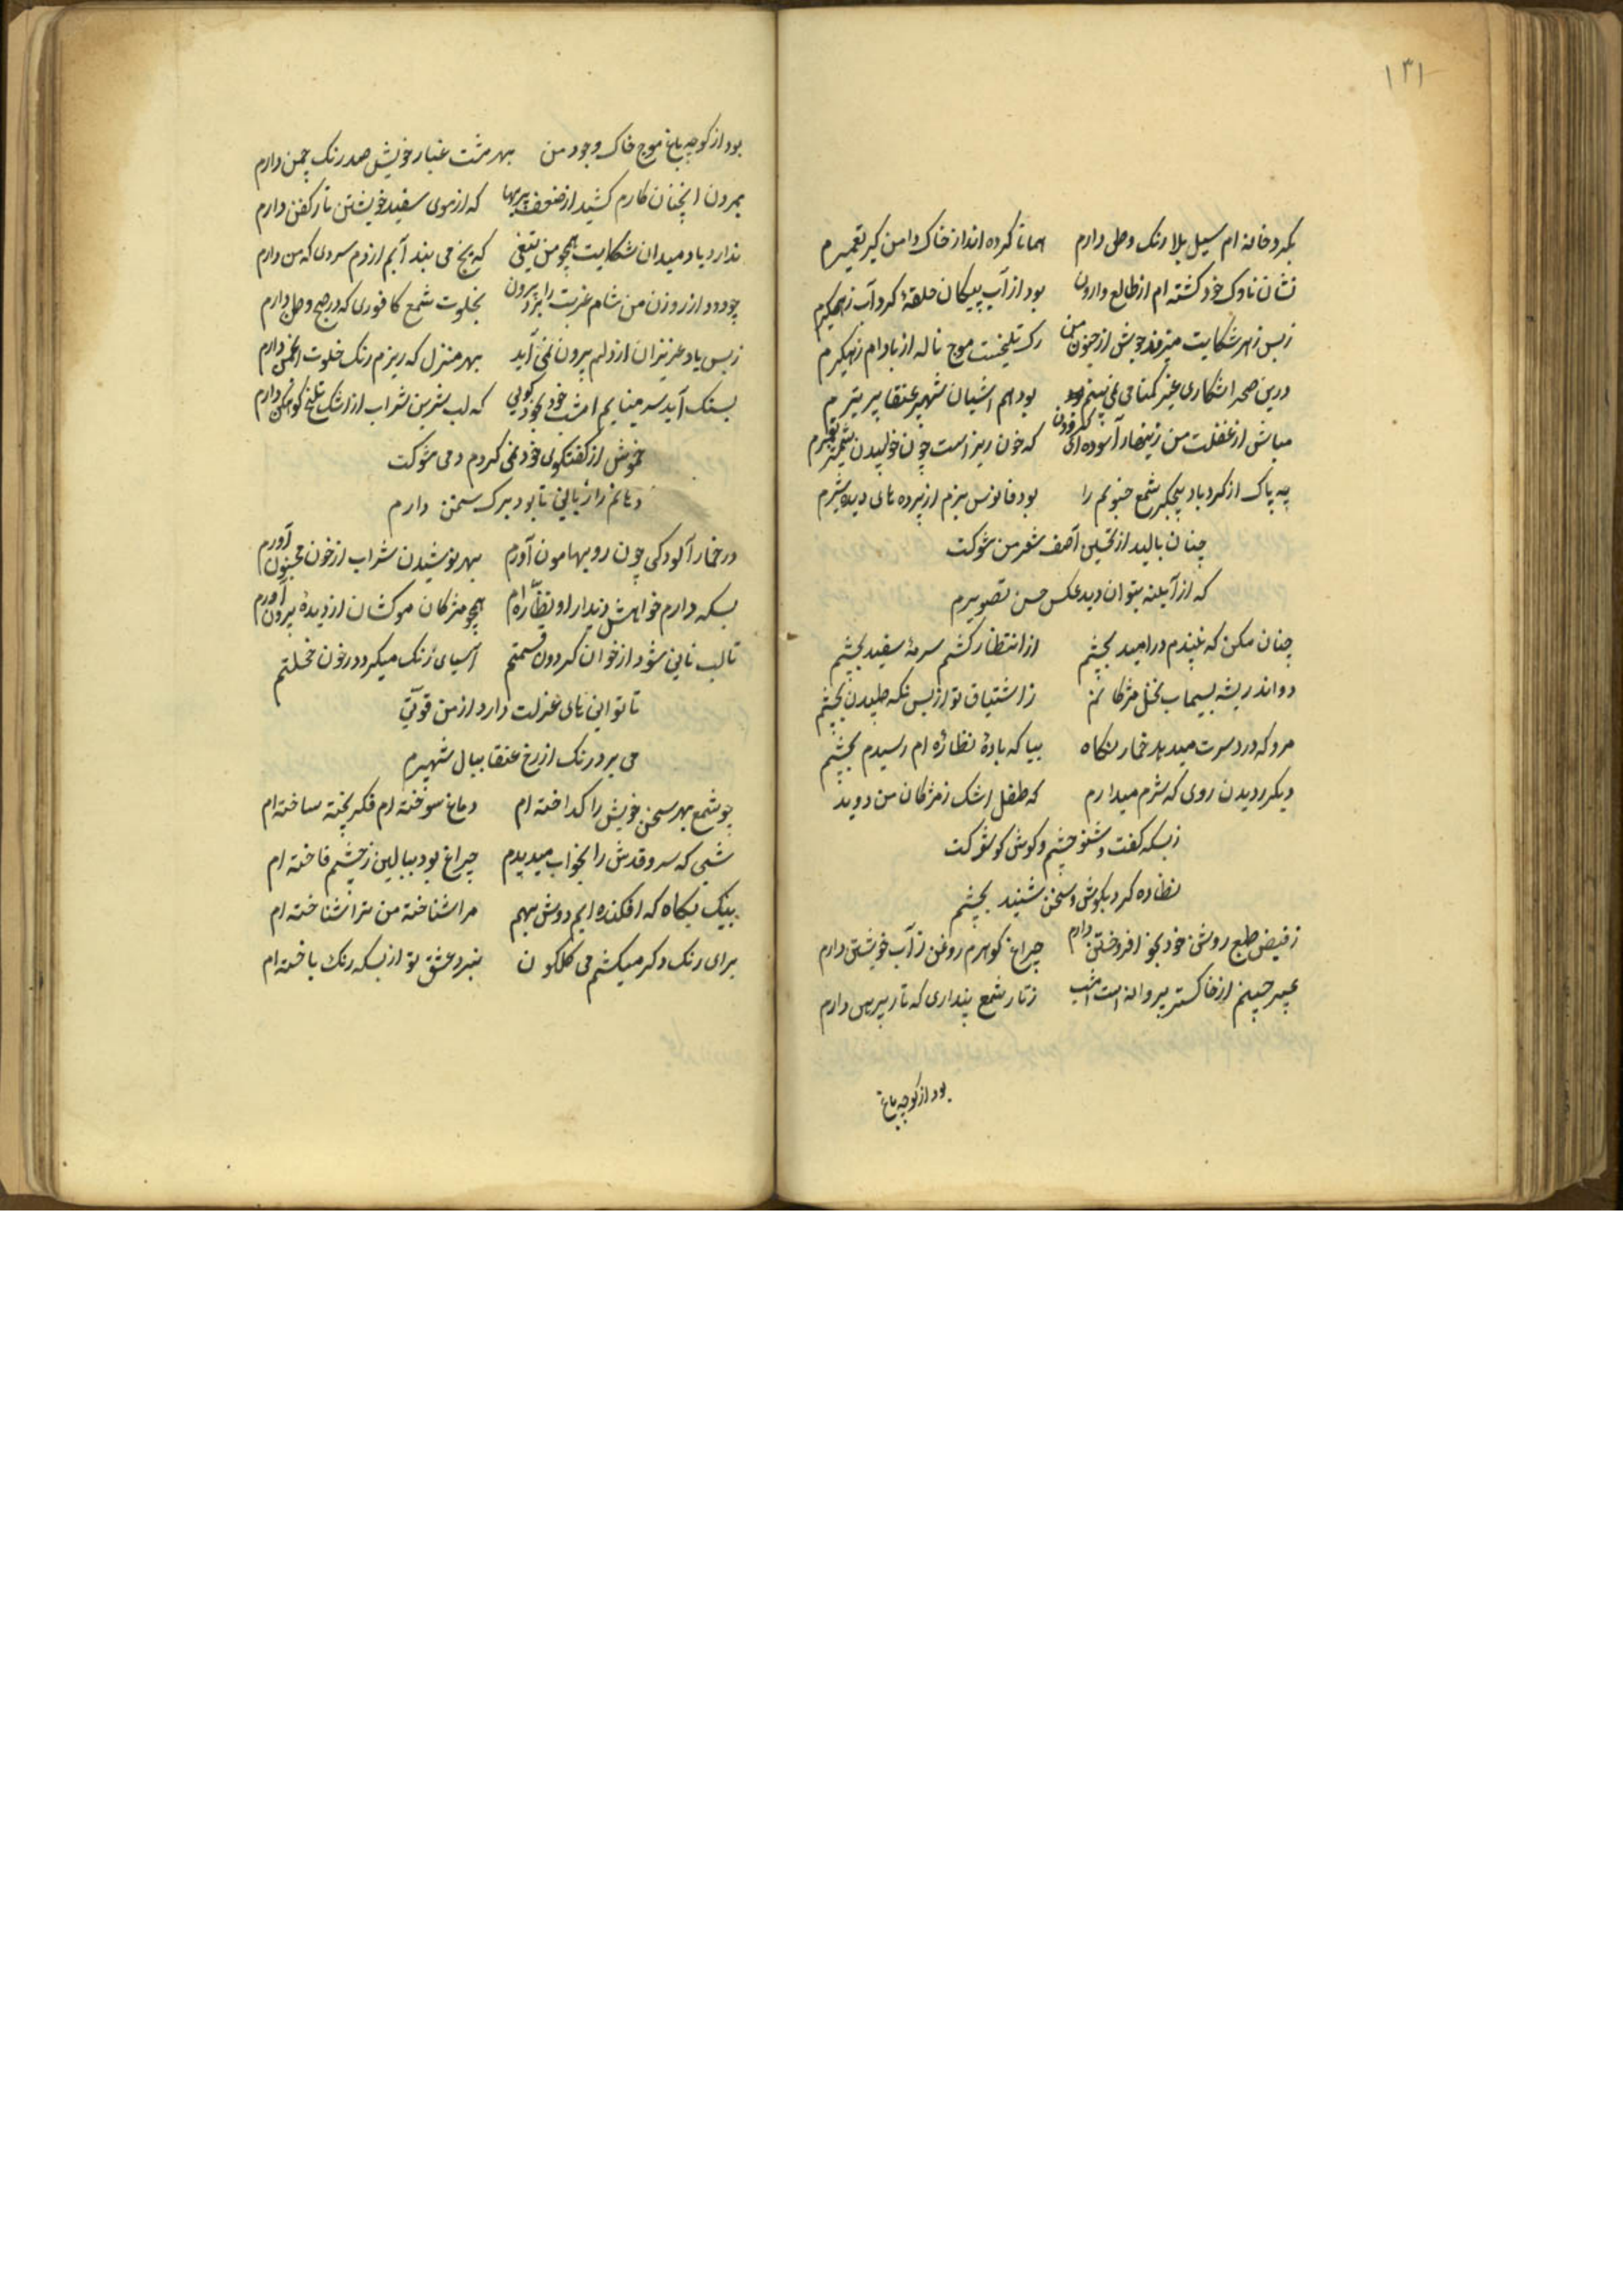 ۱۳۱
بگرد خانه ام سیل بلا رنک وطن دارم همانا کرده انداز خاک دامن کیر تعمیرم
نشان ناوک خود کشته ام از طالع وارون بود از آب پیکان حلقهٔ کرداب زهکیرم
زبس زهر شکایت میزند جوش از جنون من رک تلخیست موج ناله از بادام زنجیرم
درین صحرا شکاری غیر کمنامی نمی بینم بود هم اشیان شهپر عنقا پر تیرم
مباش از غفلت من زینهار آسوده ای کردون که خون ریز است چون خوابیدن شمشیر
چه باک از کردباد شمع جنونم را بود فانوس بزم از پرده های دیده شیرم
چنان بالید از تحسین آصف شعر من شوکت
که از آیینه بتوان دید عکس حسن تصویرم
چنان مکن که نبندم در امید بچشم از انتظار کشم سرمهٔ سفید بچشم
دواند ریشه بسیماب نخل مژکانم ز اشتیاق تو از بس نکه طپیدن بچشم
مرو که درد سرت میدهد خمار نکاه بیا که بادهٔ نظاره ام رسیدم بچشم
دیکر ز دیدن روی که شرم میدارم که طفل اشک ز مژکان من دوید
زبسکه کفت و شنو چشم و کوش کو شوکت
نظاره کرد بکوش و سخن شنید بچشم
ز فیض طبع روشن خود بخود افروختن دارم چراغ کوهرم روغن ز آب خویشتن دارم
عبیر جیبم از خاکستر پروانه است امشب ز تار شمع پنداری که تار پیرهن دارم
بود از کوچه باغ
بود از کوچه باغ موج خاک وجود من بهر مشت غبار خویش صد رنک چمن دارم
بمردن انچنان کارم کشید از ضعف پیریها که از موی سفید خویشتن تار کفن دارم
ندارد یاد میدان شکایت همچو من تیغی که یخ می بندد آبم از دم سردی که من دارم
چو دود از روزن من شام غربت را برد بیرون بخلوت شمع کافوری که در صبح وطن دارم
زبس یاد عزیزان از دلم بیرون نمی آید بهر منزل که ریزم رنک خلوت انجمن دارم
بسنک آید سر مینایم امشب خود بخود کویی که لب شرین شراب از اشک تلخ کوهکن دارم
خموش از کفتکوی خود نمی کردم دمی شوکت
دهانم را زبانی تا بود برک سخن دارم
در خمار آلودکی چون رو بهامون آورم بهر نوشیدن شراب از خون مجنون آورم
بسکه دارم خواهش دیدار او نظاره ام همچو مژکان موکشان از دیده بیرون آورم
تا لب نانی شود از خوان کردون قسمتم آسیای رنک میکردد ز خون خجلتم
ناتوانی های عزلت دارد از من قوتی
می برد رنک از رخ عنقا ببال شهپرم
چو شمع بهر سخن خویش را کداخته ام دماغ سوخته ام فکر پخته ساخته ام
شبی که سرو قدش را بخواب میدیدم چراغ بود ببالین ز چشم فاخته ام
بیک نکاه که افکنده ایم دوش بهم مرا شناخته من ترا شناخته ام
برای رنک دکر میکشم می کلکون نبرد عشق تو از بسکه رنک باخته ام